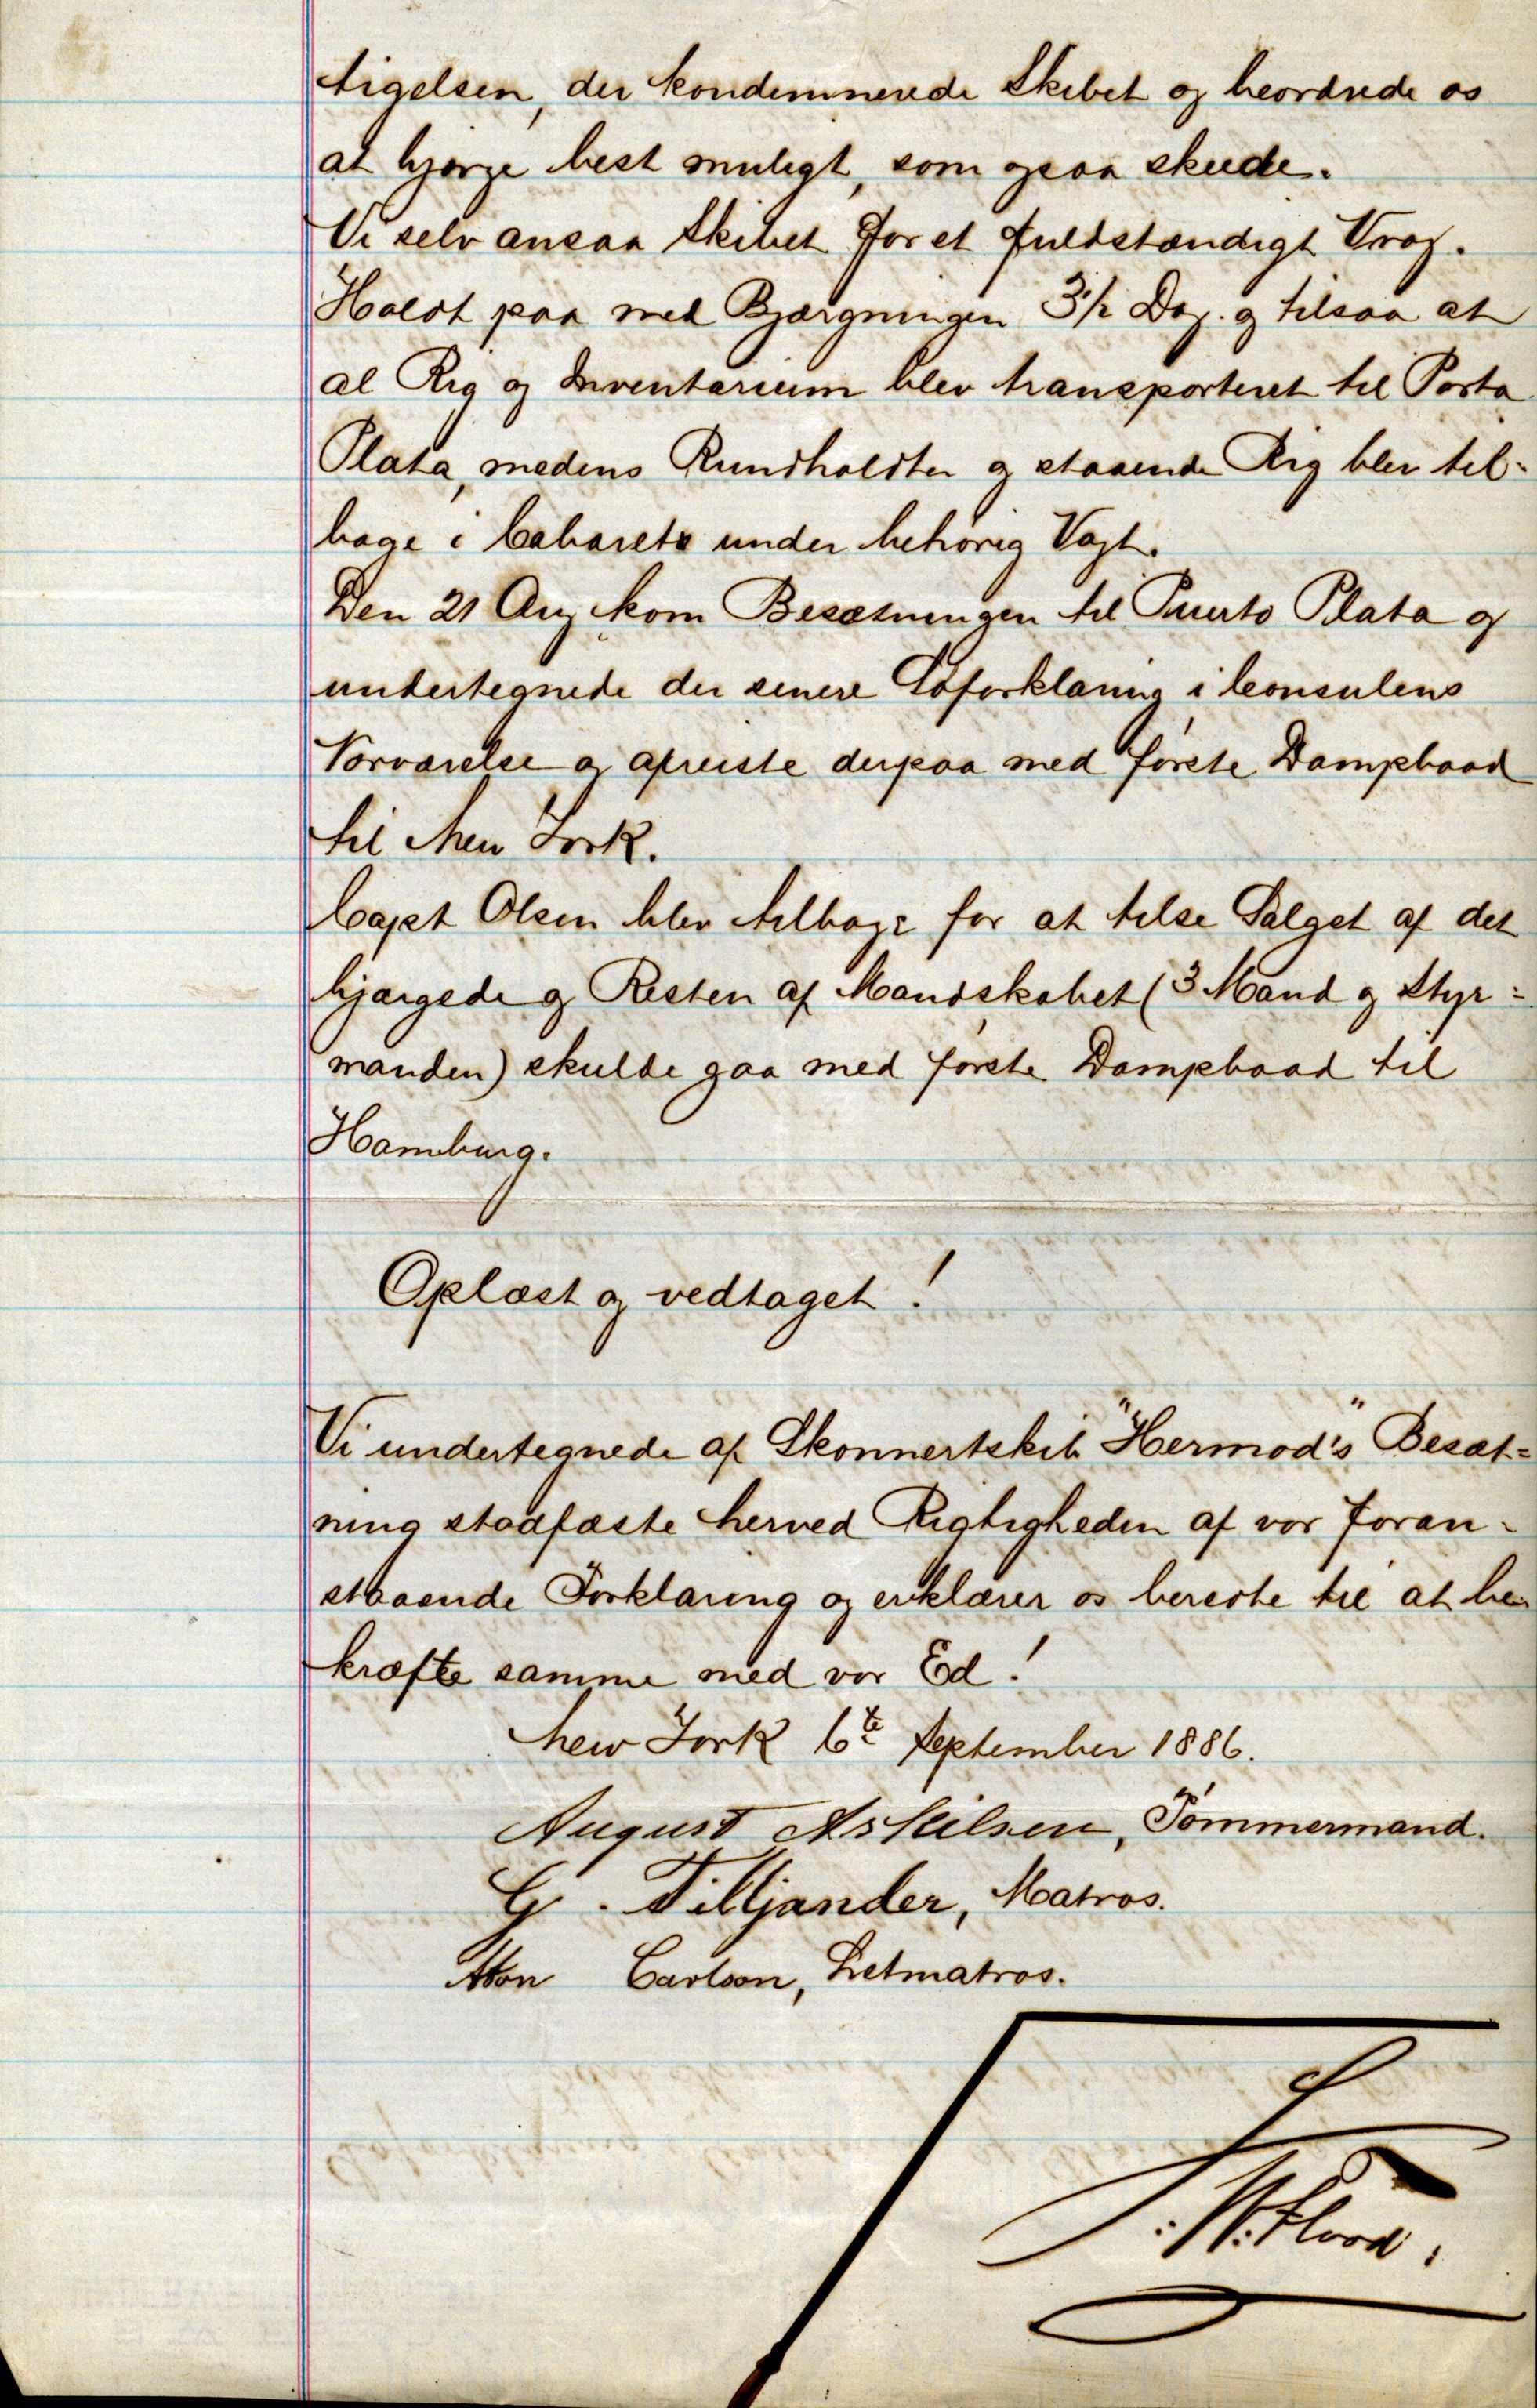 tigelsen, der kondemnerede Skibet og beordrede os
at bjærge best muligt, som ogsaa skede.
Vi selv ansaa Skibet for et fuldstændigt Vrag.
Holdt paa med Bjærgningen 3½ Dag. og tilsaa at
al Rig og Inventarium blev transporteret til Porta
Plata, medens Rundholdter og staaende Rig blev til-
bage i Cabarete under behørig Vagt.
Den 21 Aug kom Besætningen til Puerto Plata og
undertegnede der senere Søforklaring i Consulens
Nærværelse og afreiste derpaa med første Dampbaad
til New York.
Capt Olsen blev tilbage for at tilse Salget af det
bjærgede og Resten af Mandskabet (3 Mand og Styr=
manden) skulde gaa med første Dampbaad til
Hamburg.
Oplæst og vedtaget!
Vi undertegnede af Skonnertskib "Hermod's" Besæt=
ning stadfæste herved Rigtigheden af vor foran-
staaende Forklaring og erklærer os beredte til at be-
kræfte samme med vor Ed!
New York 6te September 1886.
August Askilsen, Tømmermand.
G. Tilljander, Matros.
Carlson, Letmatros.